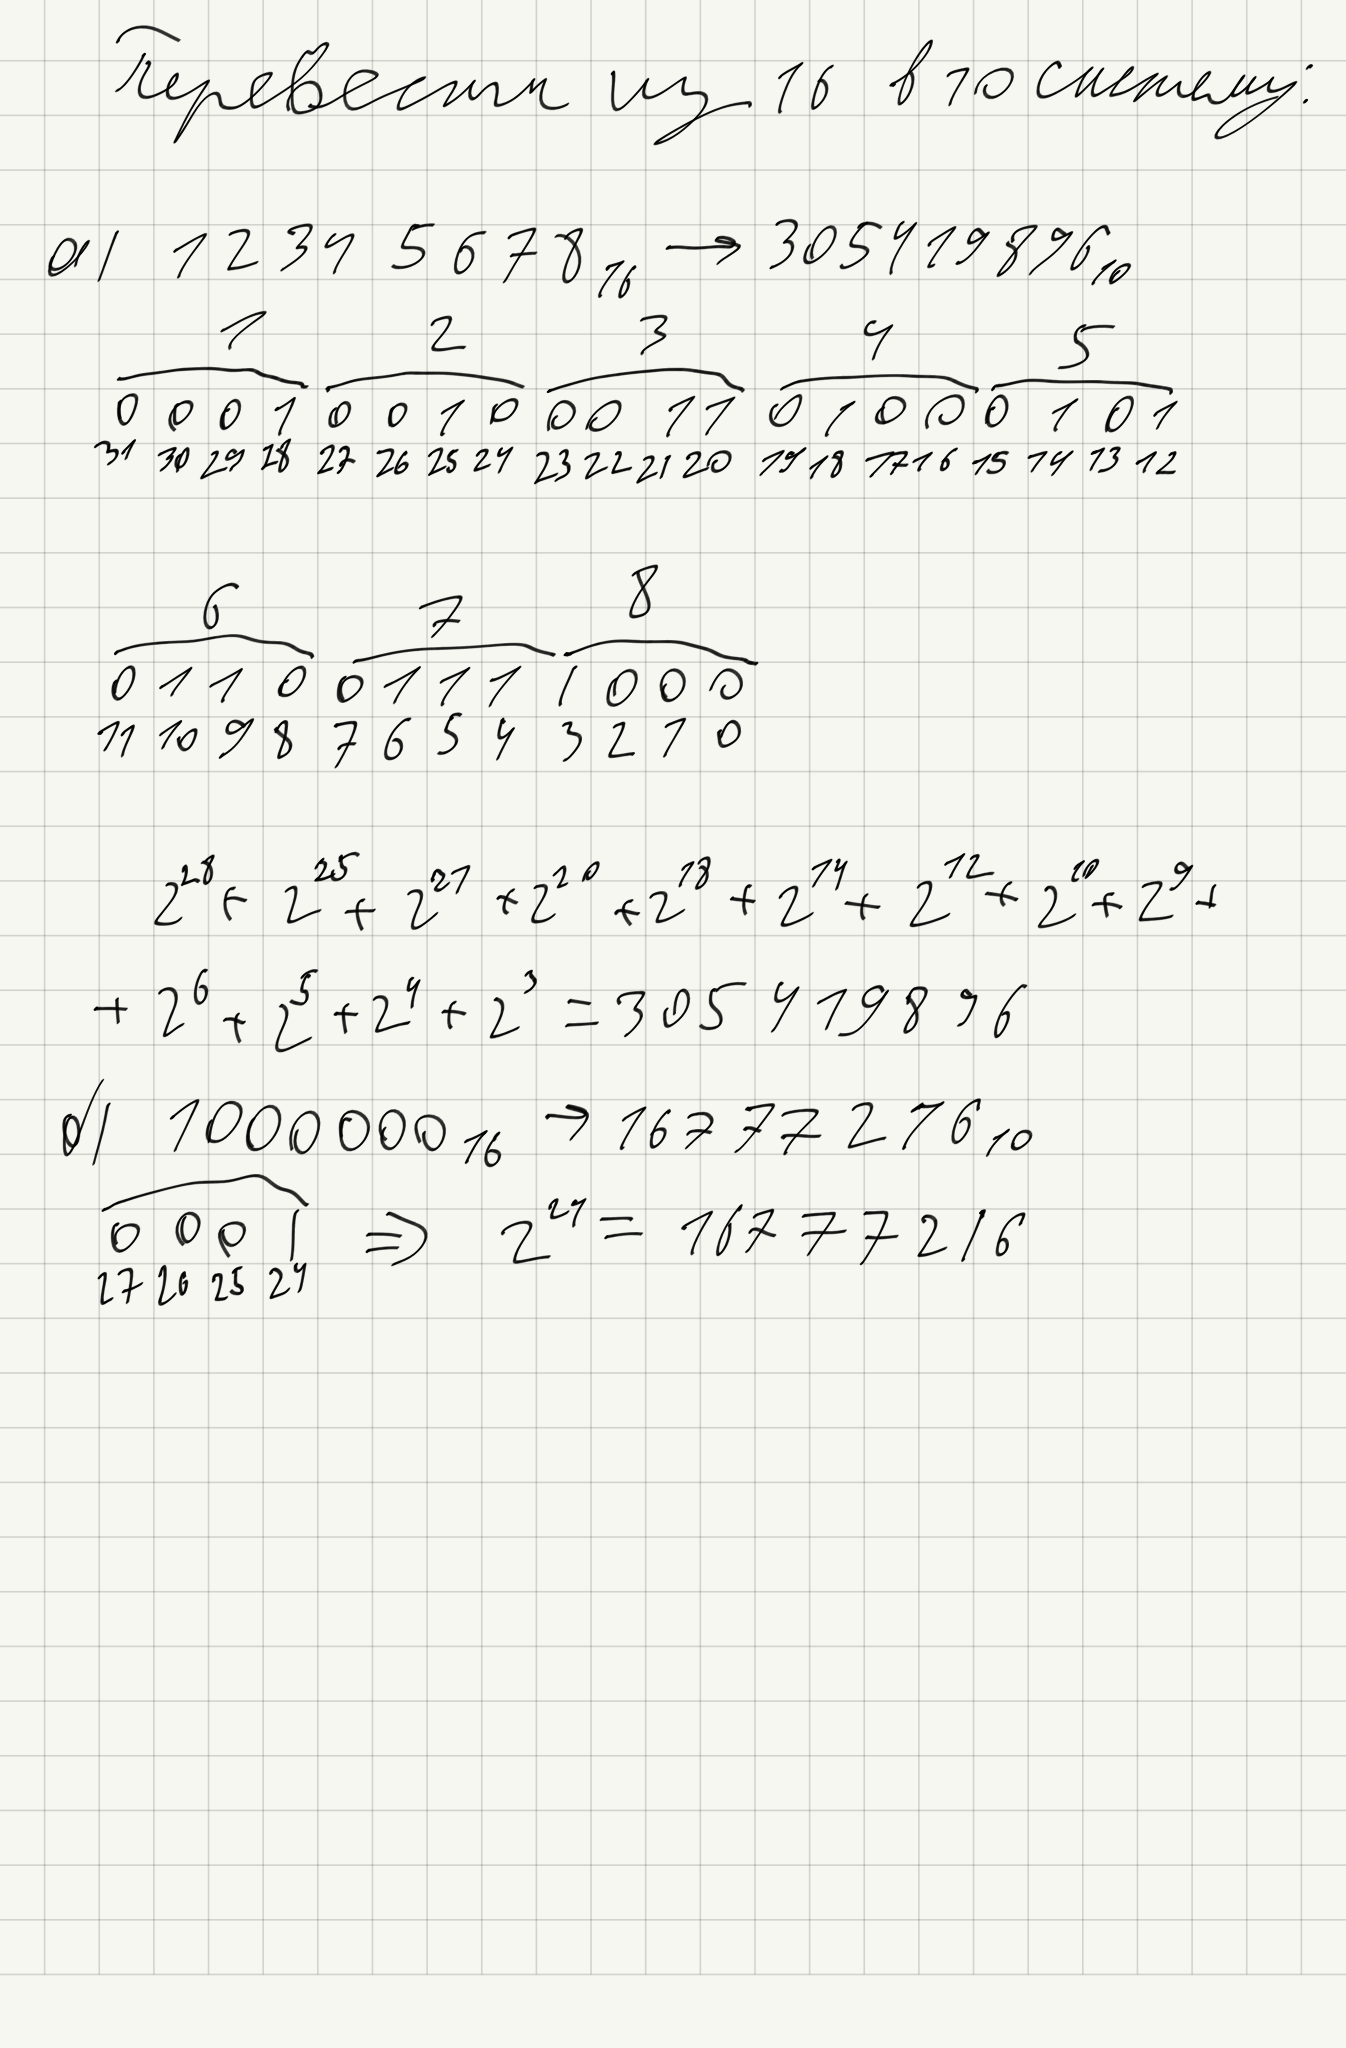 Перевести из 16 в 10 систему:
а) 12345678₁₆ → 305419896₁₀
1 2 3 4 5
0 0 0 1 0 0 1 0 0 0 1 1 0 1 0 0 0 1 0 1
31 30 29 28 27 26 25 24 23 22 21 20 19 18 17 16 15 14 13 12
6 7 8
0 1 1 0 0 1 1 1 1 0 0 0
11 10 9 8 7 6 5 4 3 2 1 0
2²⁸ + 2²⁵ + 2²¹ + 2²⁰ + 2¹⁸ + 2¹⁴ + 2¹² + 2¹⁰ + 2⁹ +
+ 2⁶ + 2⁵ + 2⁴ + 2³ = 305419896
б) 1000000₁₆ → 16777216₁₀
0 0 0 1 ⇒ 2²⁴ = 16777216
27 26 25 24